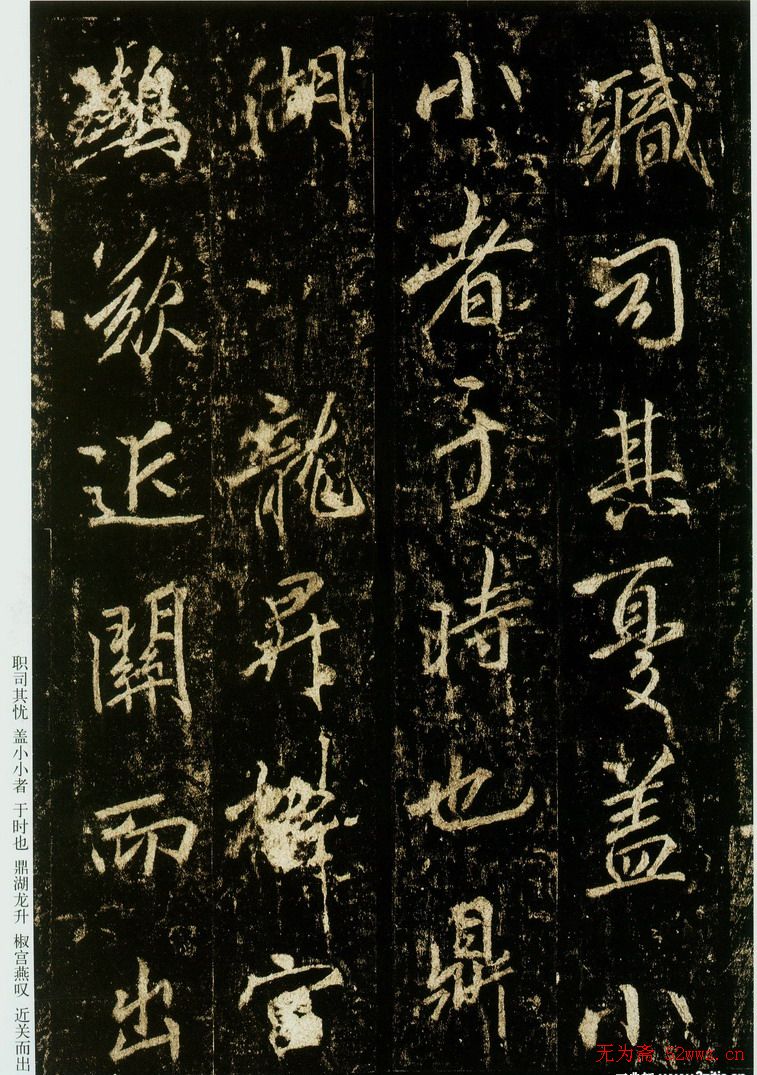 職司其憂蓋小
小者于時也鼎
湖龍昇椒宮
鷰歎近關而出
职司其忧 盖小小者 于时也 鼎湖龙升 椒宫燕叹 近关而出
无为斋 52wwz.cn